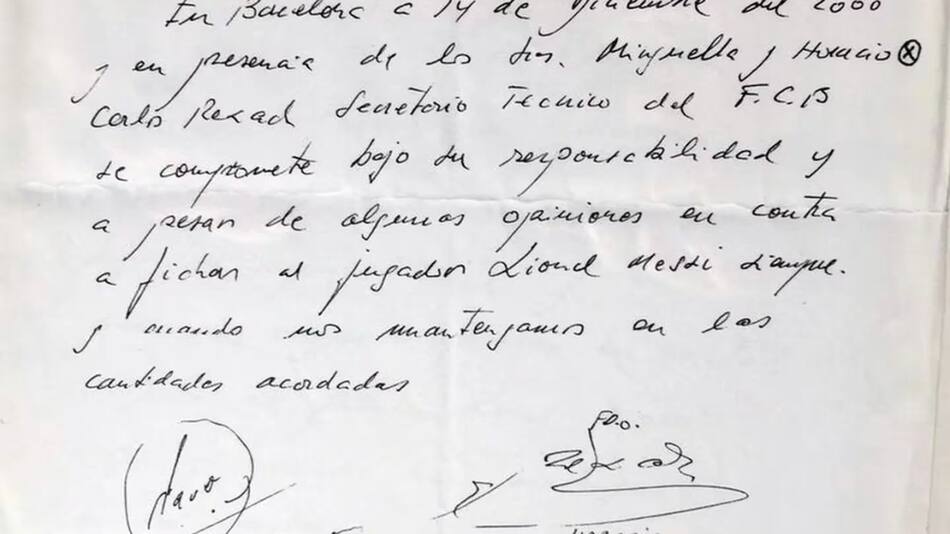 En Barcelona a 14 de Diciembre del 2000
y en presencia de los Srs. Minguella y Horacio
Carlos Rexach Secretario Tecnico del F.C.B
se compromete bajo su responsabilidad y
a pesar de algunas opiniones en contra
a fichar al jugador Lionel Messi siempre.
y cuando nos mantengamos en las
cantidades acordadas
FD.O.
Rexach
Horacio